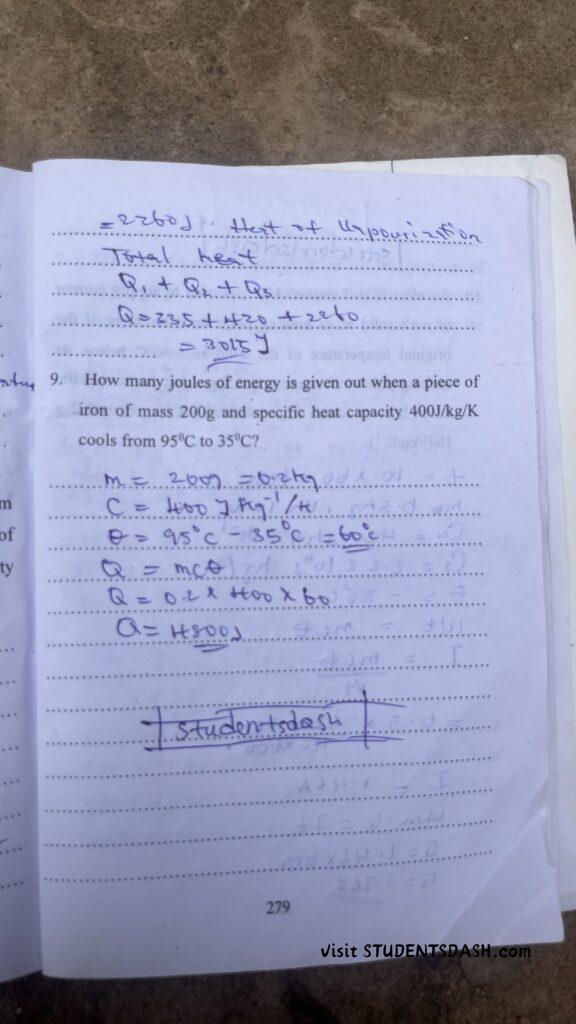 = 2260J. Heat of Vapourization
Total heat
Q₁ + Q₂ + Q₃
Q = 235 + 420 + 2260
= 3015J
9. How many joules of energy is given out when a piece of
iron of mass 200g and specific heat capacity 400J/kg/K
cools from 95⁰C to 35⁰C?
m = 200g = 0.2kg
C = 400 J kg⁻¹/K
θ = 95°C - 35°C = 60°C
Q = mcθ
Q = 0.2 x 400 x 60
Q = 4800J
studentsdash
m
of
ty
279
Visit STUDENTSDASH.com